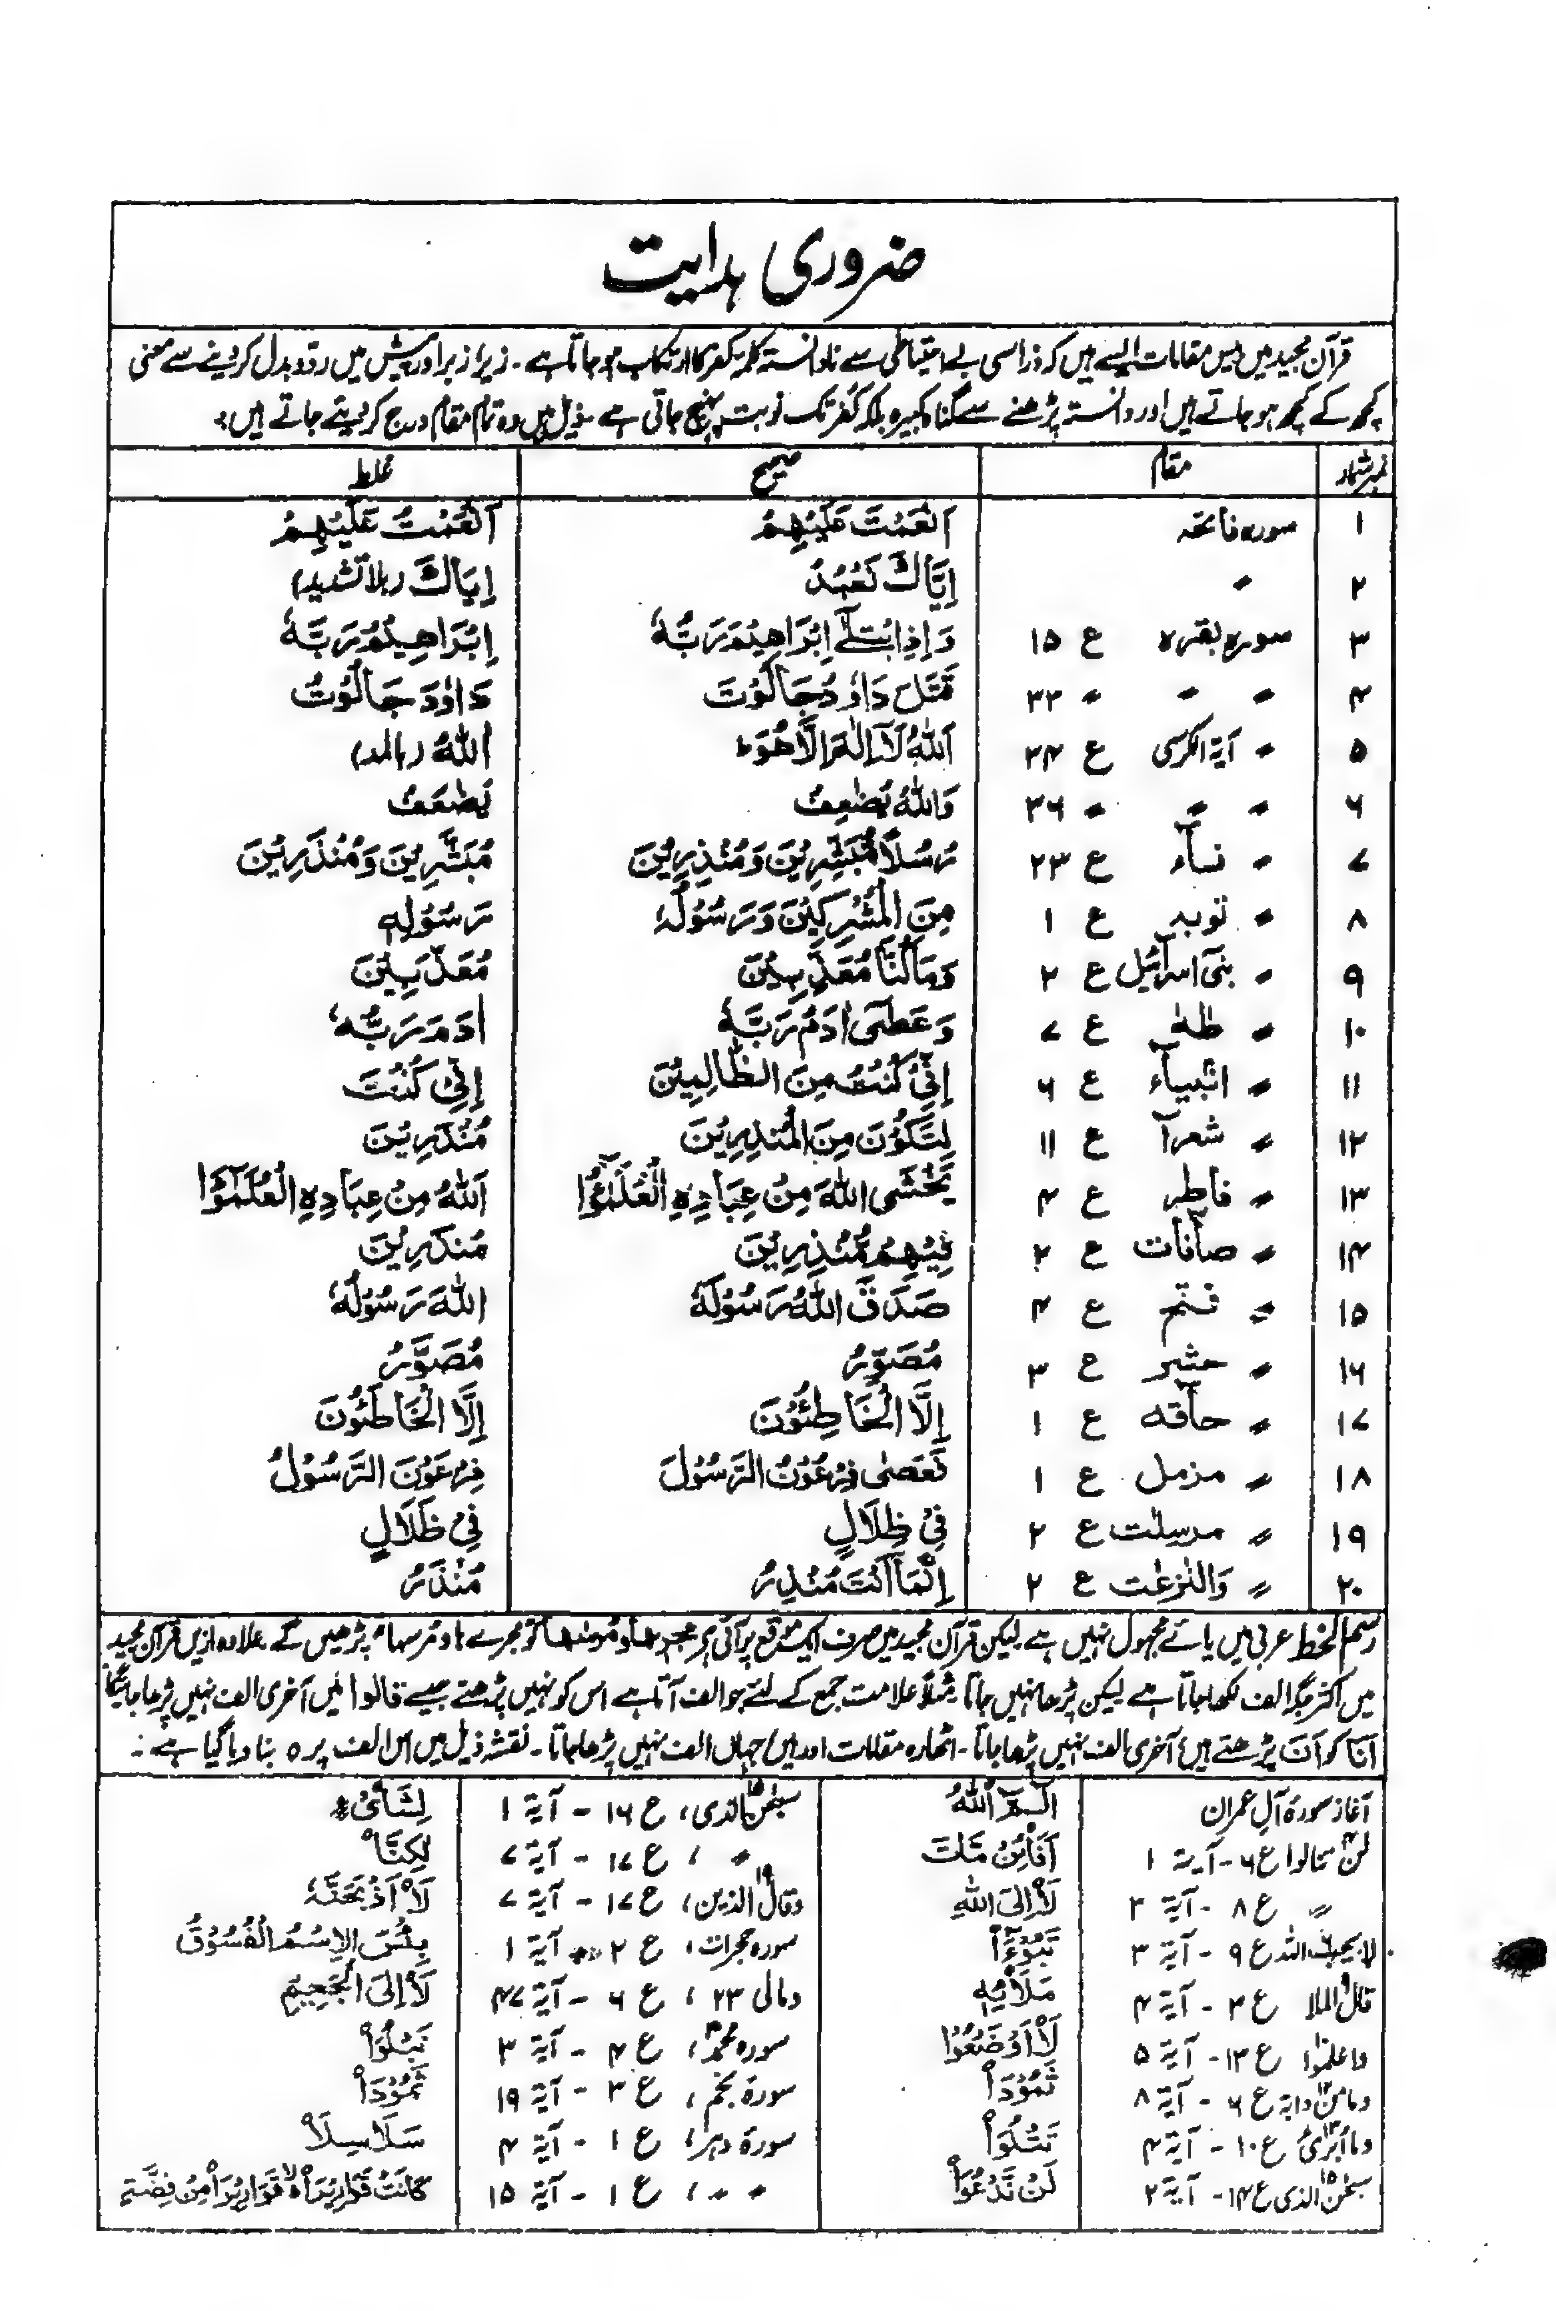 ضروری ہدایت
قرآن مجید میں بیس مقامات ایسے ہیں کہ ذرا سی بے احتیاطی سے نادانستہ کلمۂ کفر کا ارتکاب ہو جاتا ہے۔ زیر، زبر اور پیش میں ردّ و بدل کر دینے سے معنی
کچھ کے کچھ ہو جاتے ہیں اور دانستہ پڑھنے سے گناہِ کبیرہ بلکہ کفر تک نوبت پہنچ جاتی ہے۔ ذیل میں وہ تمام مقام درج کر دیئے جاتے ہیں:
نمبر شمار مقام صحیح غلط
۱ سورہ فاتحہ اَنْعَمْتَ عَلَيْهِمْ اَنْعَمْتُ عَلَيْهِمْ
۲ " اِيَّاكَ نَعْبُدُ اِيَاكَ (بلا تشدید)
۳ سورہ بقرہ ع ۱۵ وَاِذِ ابْتَلٰٓى اِبْرَاهِيْمَ رَبُّهٗ اِبْرَاهِيْمُ رَبَّهٗ
۴ " " " ۳۳ قَتَلَ دَاوٗدُ جَالُوْتَ دَاوٗدَ جَالُوْتُ
۵ " آیۃ الکرسی ع ۳۴ اَللّٰهُ لَآ اِلٰهَ اِلَّا هُوَ ط اٰللّٰهُ (بالمد)
۶ " " " ۳۶ وَاللّٰهُ يُضٰعِفُ يُضٰعَفُ
۷ " نسآء ع ۲۳ رُسُلًا مُّبَشِّرِيْنَ وَمُنْذِرِيْنَ مُبَشَّرِيْنَ وَمُنْذَرِيْنَ
۸ " توبہ ع ۱ مِنَ الْمُشْرِكِيْنَ وَرَسُوْلُهٗ رَسُوْلِهٖ
۹ " بنی اسرآئیل ع ۲ وَمَا كُنَّا مُعَذِّبِيْنَ مُعَذَّبِيْنَ
۱۰ " طٰهٰ ع ۷ وَعَصٰٓى اٰدَمُ رَبَّهٗ اٰدَمَ رَبُّهٗ
۱۱ " انبیآء ع ۶ اِنِّيْ كُنْتُ مِنَ الظّٰالِمِيْنَ اِنِّيْ كُنْتَ
۱۲ " شعرآ ع ۱۱ لِتَكُوْنَ مِنَ الْمُنْذِرِيْنَ مُنْذَرِيْنَ
۱۳ " فاطر ع ۴ يَخْشَى اللّٰهَ مِنْ عِبَادِهِ الْعُلَمٰٓؤُا اَللّٰهُ مِنْ عِبَادِهِ الْعُلَمٰٓؤَا
۱۴ " صآفات ع ۲ فِيْهِمْ مُّنْذِرِيْنَ مُنْذَرِيْنَ
۱۵ " فتح ع ۴ صَدَقَ اللّٰهُ رَسُوْلَهٗ اللّٰهَ رَسُوْلُهٗ
۱۶ " حشر ع ۳ مُصَوِّرُ مُصَوَّرُ
۱۷ " حآقہ ع ۱ اِلَّا الْخَاطِئُوْنَ اِلَّا الْخَاطَئُوْنَ
۱۸ " مزمل ع ۱ فَعَصٰى فِرْعَوْنُ الرَّسُوْلَ فِرْعَوْنَ الرَّسُوْلُ
۱۹ " مرسلٰت ع ۲ فِيْ ظِلَالٍ فِيْ ظَلَالٍ
۲۰ " وَالنّٰزِعٰت ع ۲ اِنَّمَآ اَنْتَ مُنْذِرُ مُنْذَرُ
رسم الخط عربی میں یائے مجہول نہیں ہے لیکن قرآن مجید میں صرف ایک موقع پر آئی ہے مجرىها و مرسٰها کو مجرے ہا و مرسہا پڑھیں گے علاوہ ازیں قرآن مجید
میں اکثر جگہ الف لکھا جاتا ہے لیکن پڑھا نہیں جاتا مثلاً علامت جمع کے لئے جو الف آتا ہے اس کو نہیں پڑھتے جیسے قالوا میں آخری الف نہیں پڑھا جائیگا
اَنَا کو اَنَ پڑھتے ہیں آخری الف نہیں پڑھا جاتا۔ اٹھارہ مقامات اور ہیں جہاں الف نہیں پڑھا جاتا۔ نقشہ ذیل میں اس الف پر ہ بنا دیا گیا ہے:۔
آغاز سورۃ آلِ عمران الٓمّٓ اللّٰهُ سبحٰن الذی، ع ۱۶ - آیۃ ۱ لِشَا۟يْءٍ
لن تنالوا ع ۶ - آیۃ ۱ اَفَا۟ئِنْ مَّاتَ " ، ع ۱۷ - آیۃ ۷ لٰكِنَّا۟
" ع ۸ - آیۃ ۳ لَا۟اِلَى اللّٰهِ وقال الذین، ع ۱۷ - آیۃ ۷ لَا۟اَذْبَحَنَّهٗ
لا یحب اللہ ع ۹ - آیۃ ۳ تَبُوْٓءَا۟ سورہ حجرات، ع ۲ - آیۃ ۱ بِئْسَ الِاسْمُ الْفُسُوْقُ
قال الملا ع ۳ - آیۃ ۴ مَلَا۟ئِهٖ ومالی ۲۳، ع ۶ - آیۃ ۴۷ لَا۟اِلَى الْجَحِيْمِ
واعلموا ع ۱۳ - آیۃ ۵ لَا۟اَوْضَعُوْا سورہ محمد، ع ۴ - آیۃ ۳ نَبْلُوَا۟
وما من دابۃ ع ۶ - آیۃ ۸ ثَمُوْدَا۟ سورۃ نجم، ع ۳ - آیۃ ۱۹ ثَمُوْدَا۟
وما ابرئ ع ۱۰ - آیۃ ۴ تَتْلُوَا۟ سورۃ دہر، ع ۱ - آیۃ ۴ سَلَاسِلَا۟
سبحٰن الذی ع ۱۴ - آیۃ ۲ لَنْ نَّدْعُوَا۟ " "، ع ۱ - آیۃ ۱۵ كَانَتْ قَوَارِيْرَا۟ قَوَارِيْرَا۟ مِنْ فِضَّةٍ